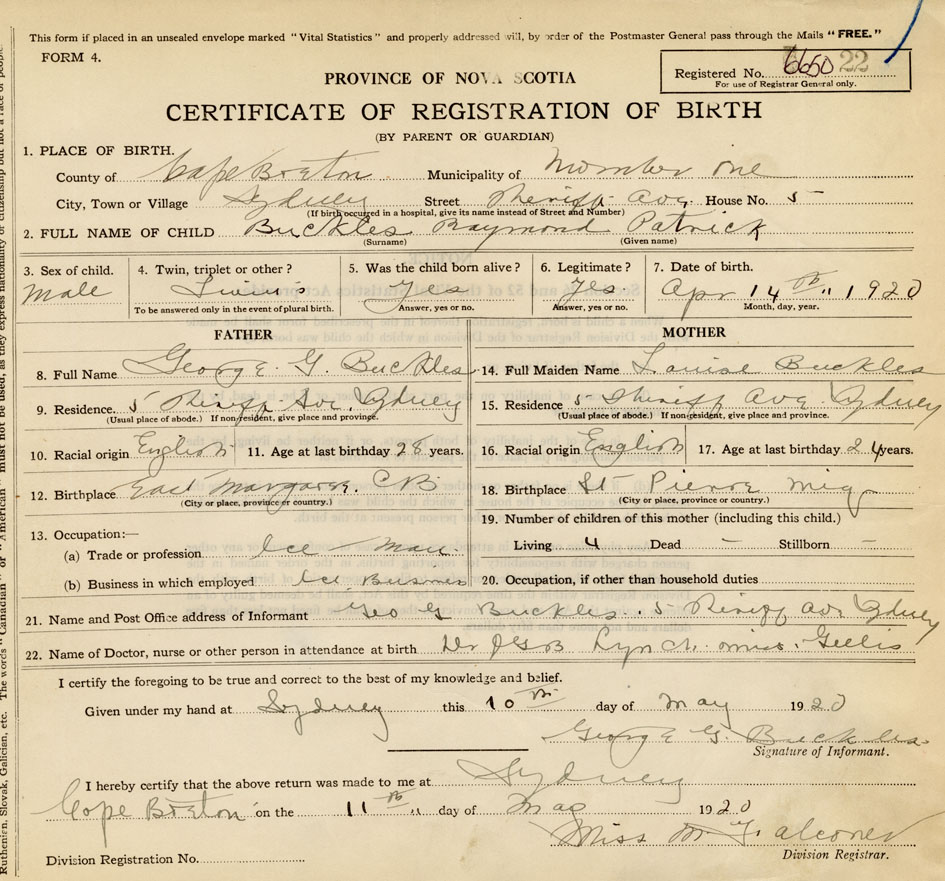 This form if placed in an unsealed envelope marked "Vital Statistics" and properly addressed will, by order of the Postmaster General pass through the Mails "FREE."
FORM 4.
Registered No. 6650 22
For use of Registrar General only.
PROVINCE OF NOVA SCOTIA
CERTIFICATE OF REGISTRATION OF BIRTH
(BY PARENT OR GUARDIAN)
1. PLACE OF BIRTH.
County of Cape Breton Municipality of Number One
City, Town or Village Sydney Street Sheriff Ave. House No. 5
(If birth occurred in a hospital, give its name instead of Street and Number)
2. FULL NAME OF CHILD Buckles Raymond Patrick
(Surname) (Given name)
3. Sex of child. 4. Twin, triplet or other? 5. Was the child born alive? 6. Legitimate? 7. Date of birth.
Male Twins Yes Yes Apr 14th 1920
To be answered only in the event of plural birth. Answer, yes or no. Answer, yes or no. Month, day, year.
FATHER MOTHER
8. Full Name George G. Buckles 14. Full Maiden Name Louise Buckles
9. Residence. 5 Sheriff Ave Sydney 15. Residence 5 Sheriff Ave Sydney
(Usual place of abode.) If nonresident, give place and province. (Usual place of abode.) If nonresident, give place and province.
10. Racial origin English 11. Age at last birthday 28 years. 16. Racial origin English 17. Age at last birthday 24 years.
12. Birthplace East Margaree. C B 18. Birthplace St Pierre Miq
(City or place, province or country.) (City or place, province or country.)
19. Number of children of this mother (including this child.)
13. Occupation:—
(a) Trade or profession Ice Man Living 4 Dead – Stillborn –
(b) Business in which employed Ice Business 20. Occupation, if other than household duties
21. Name and Post Office address of Informant Geo G Buckles. 5 Sheriff Ave Sydney
22. Name of Doctor, nurse or other person in attendance at birth Dr Lynch. Miss. Gillis
I certify the foregoing to be true and correct to the best of my knowledge and belief.
Given under my hand at Sydney this 10th day of May 1920
George G. Buckles
Signature of Informant.
I hereby certify that the above return was made to me at Sydney
Cape Breton on the 11th day of May 1920
Miss M Falconer
Division Registrar.
Division Registration No.